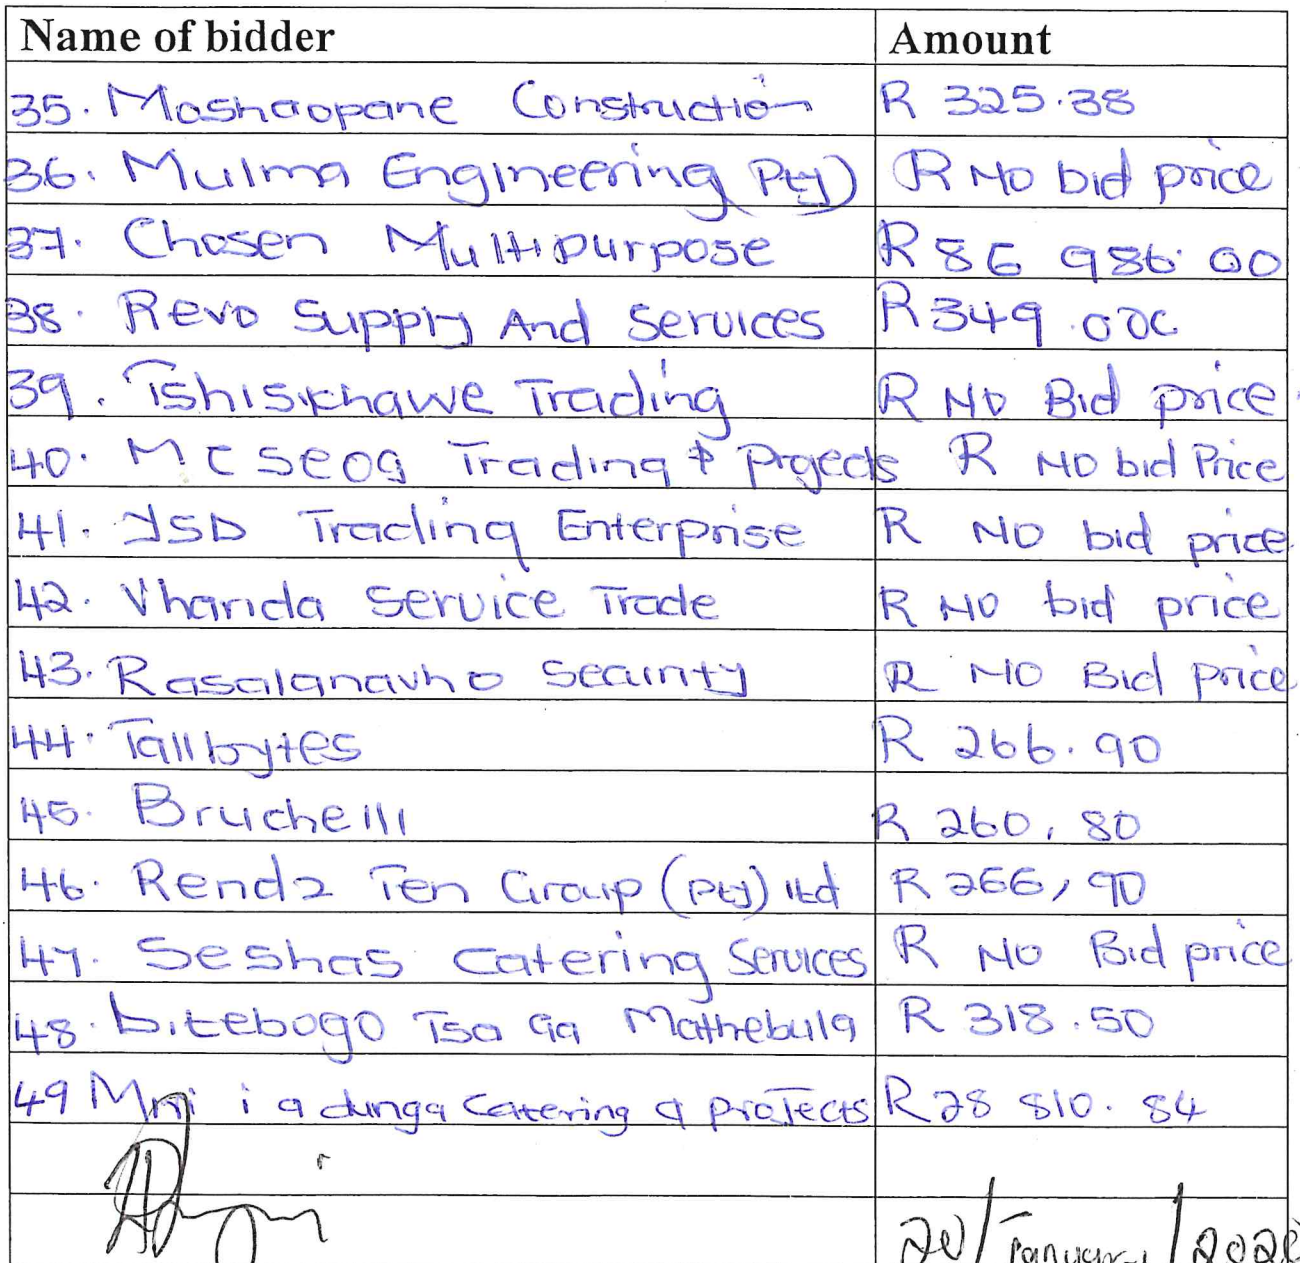 Name of bidder Amount
35. Mashaopane Construction R 325.38
36. Mulma Engineering Pty) R NO bid price
37. Chosen Multipurpose R 86 986.00
38. Revo Supply And Services R 349.00
39. Tshisikhawe Trading R NO Bid price
40. Trading & Projects R NO bid Price
41. JSD Trading Enterprise R NO bid price
42. Vhanda Service Trade R NO bid price
43. Rasalanavho Security R NO Bid price
44. Tallbytes R 266.90
45. Bruchelli R 260.80
46. Rendz Ten Group (Pty) ltd R 266,90
47. Seshas Catering Services R NO Bid price
48. Ditebogo Tsa ga Mathebula R 318.50
49 i a dunga Catering & projects R 28 810.84
20/January/